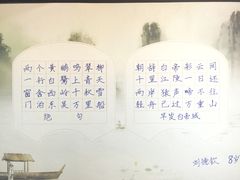 两个黄鹂鸣翠柳
一行白鹭上青天
窗含西岭千秋雪
门泊东吴万里船
绝句
朝辞白帝彩云间
千里江陵一日还
两岸猿声啼不住
轻舟已过万重山
早发白帝城
84